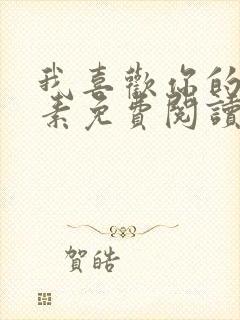 我喜歡你的
素免費閱讀
賀皓